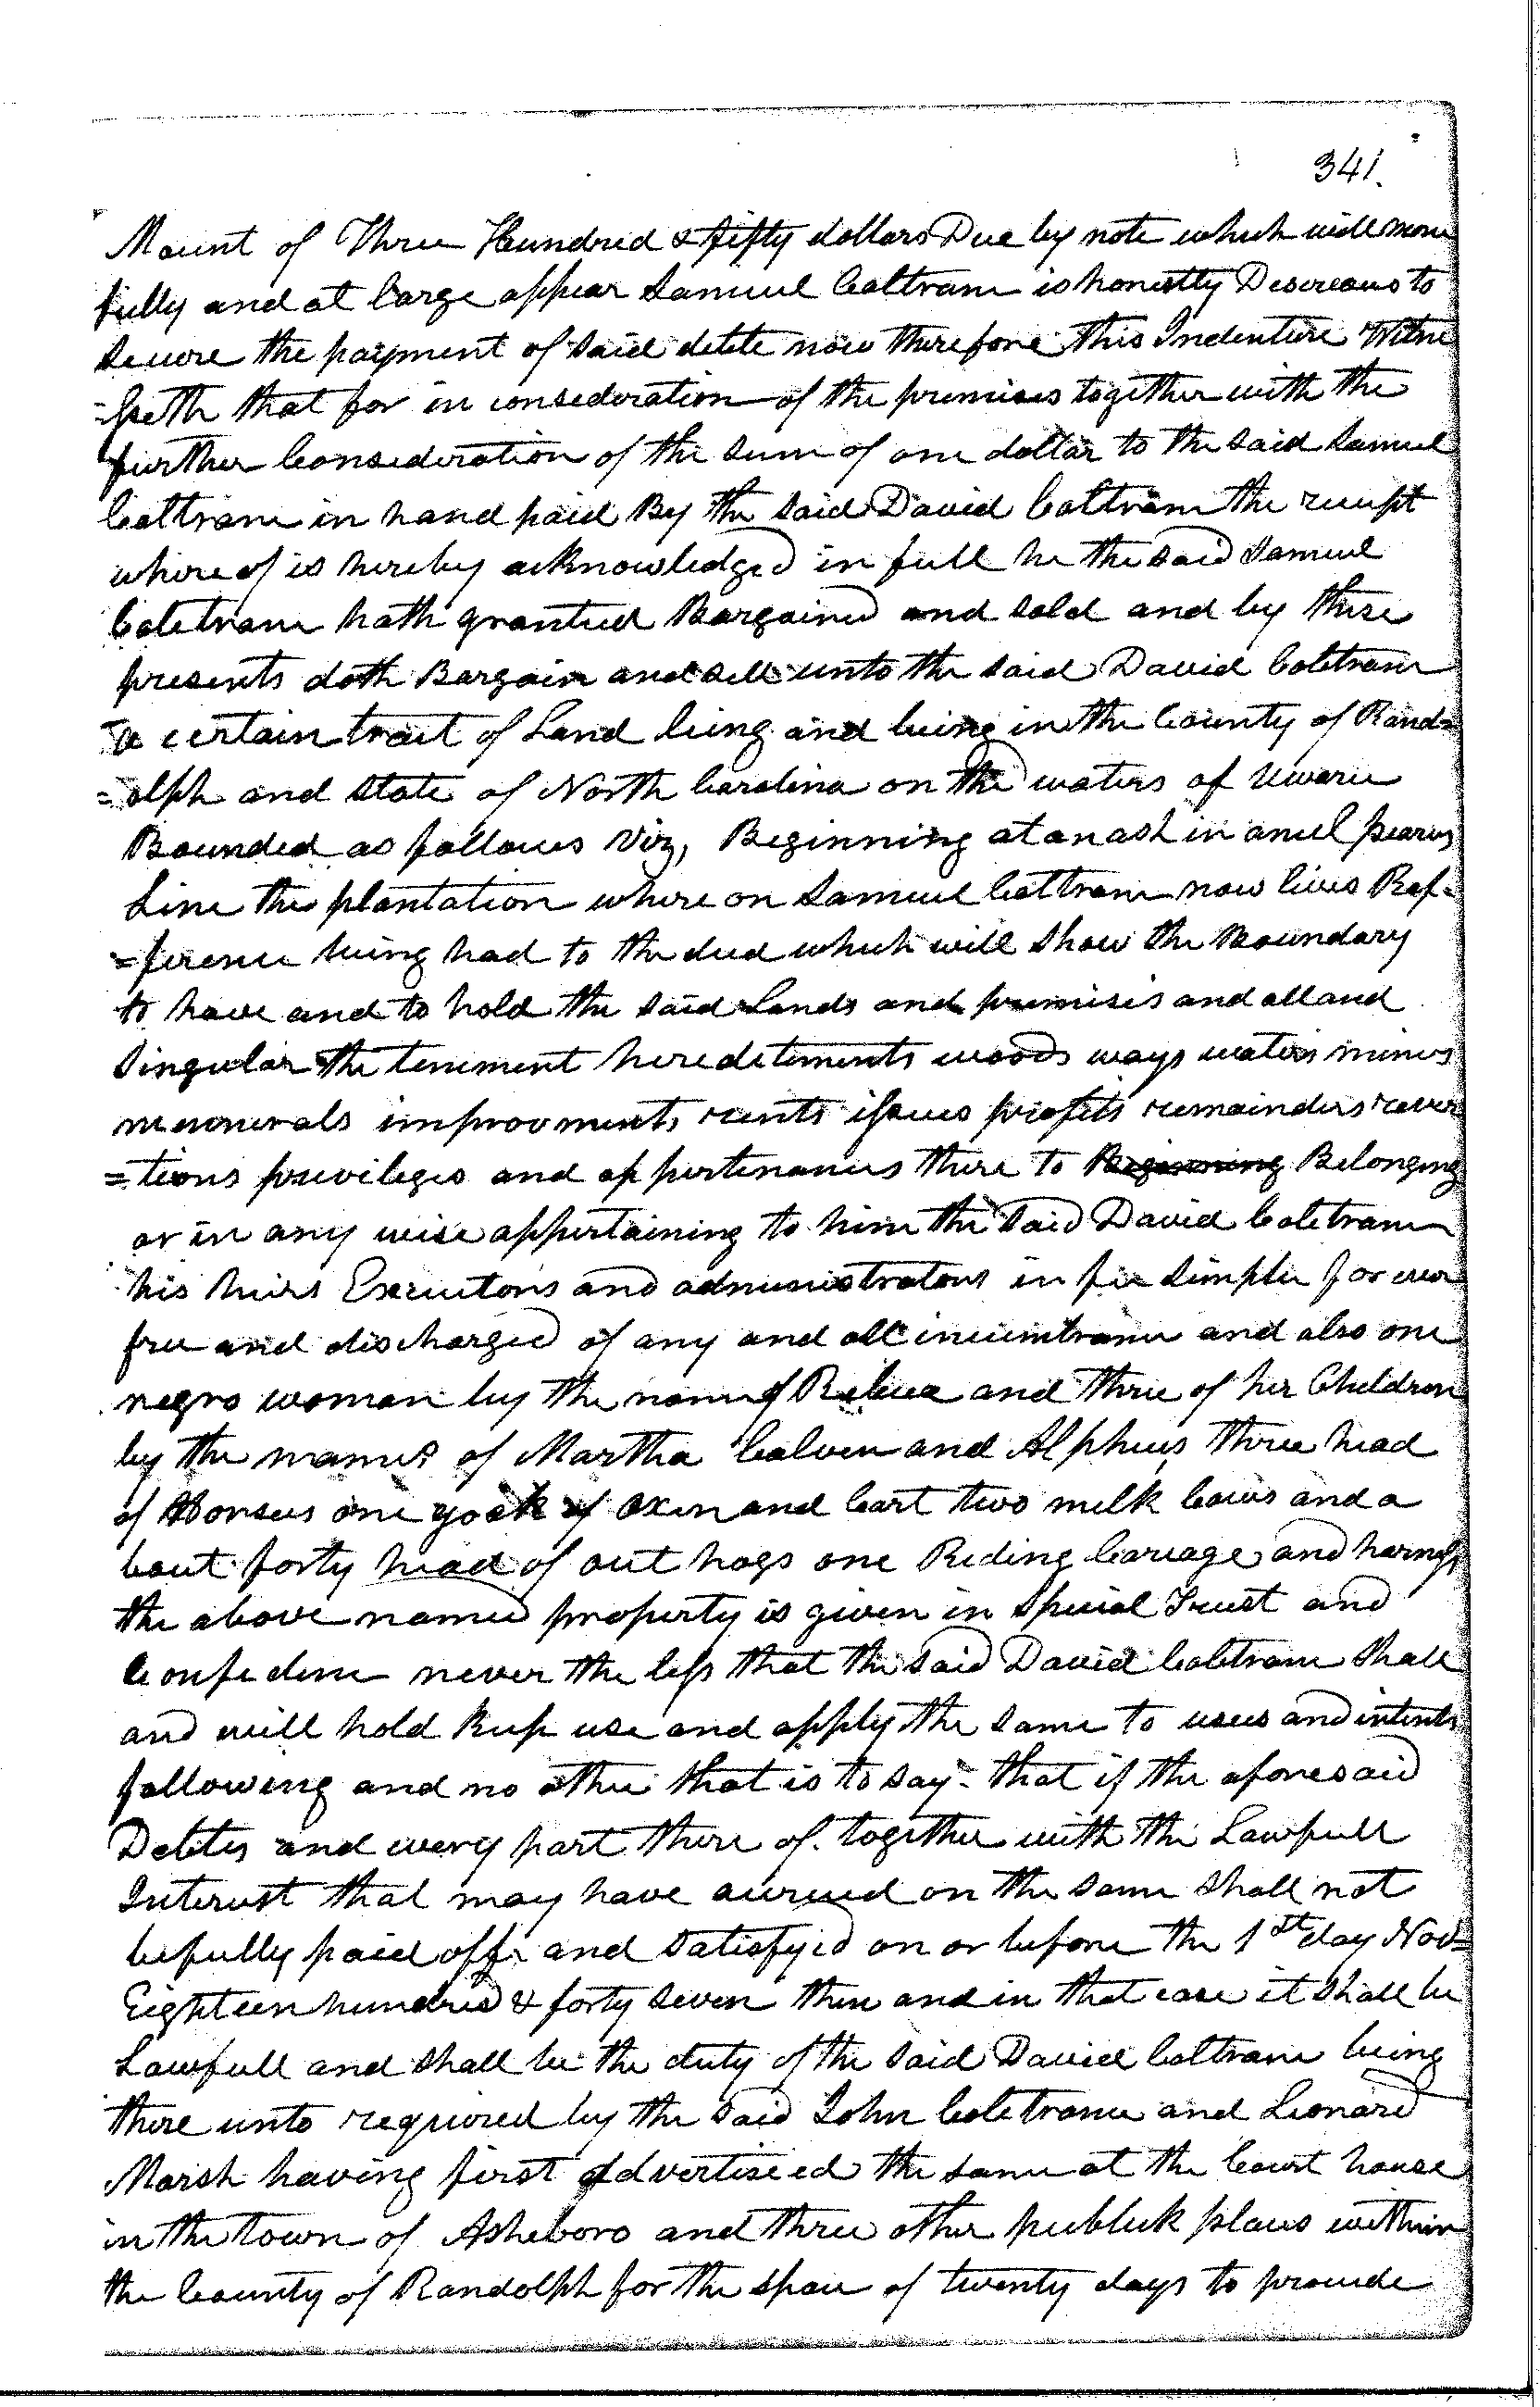 341.
Mount of Three Hundred & fifty dollars Due by note which will more
fully and at large appear Samuel Coltrane is honestly Desireous to
secure the payment of said debte now therefore this Indenture Witne
=sseth that for in consederation of the premises together with the
further Consederation of the sum of one dollar to the said Samuel
Coltrane in hand paid By the said David Coltrane the receipt
where of is hereby acknowledged in full he the said Samuel
Coletrane hath granted Bargained and sold and by these
presents doth Bargain and sell unto the said David Coletrane
a certain tract of Land lieing and being in the County of Rand=
=olph and State of North Carolina on the waters of Uwarie
Bounded as follows Viz, Beginning at an ash in
Line the plantation where on Samuel Coltrane now lives Ref=
=ference being had to the deed which will show the Boundary
to have and to hold the said Lands and premises and all and
singular the teniment heredetements woods ways waters mines
mennerals improvments rents issues profits remainders rever
=tions privileges and appertenances there to Beginning Belonging
or in any wise appertaining to him the said David Coletrane
his heirs Executors and administrators in fee simple for ever
free and discharged of any and all incumbrance and also one
negro woman by the name of Rebeca and three of her Children
by the names of Martha Calvin and Alpheus three head
of Horses one yoek of oxen and Cart two milk Cows and a
bout forty head of out hogs one Riding Cariage and harness
the above named property is given in Special Trust and
Confidence never the less that the said David Coletrane shall
and will hold keep use and apply the same to uses and intents
following and no other that is to say - that if the aforesaid
Debtes and every part there of together with the Lawfull
Interest that may have acrued on the same shall not
be fully paid off and satisfyed on or before the 1st day Nov=
Eighteen hundred & forty seven then and in that case it shall be
Lawfull and shall be the duty of the said David Coltrane being
there unto required by the said John Coletrane and Leonard
Marsh having first advertiseed the same at the Court house
in the town of Asheboro and three other publick places within
the County of Randolph for the space of twenty days to proceede